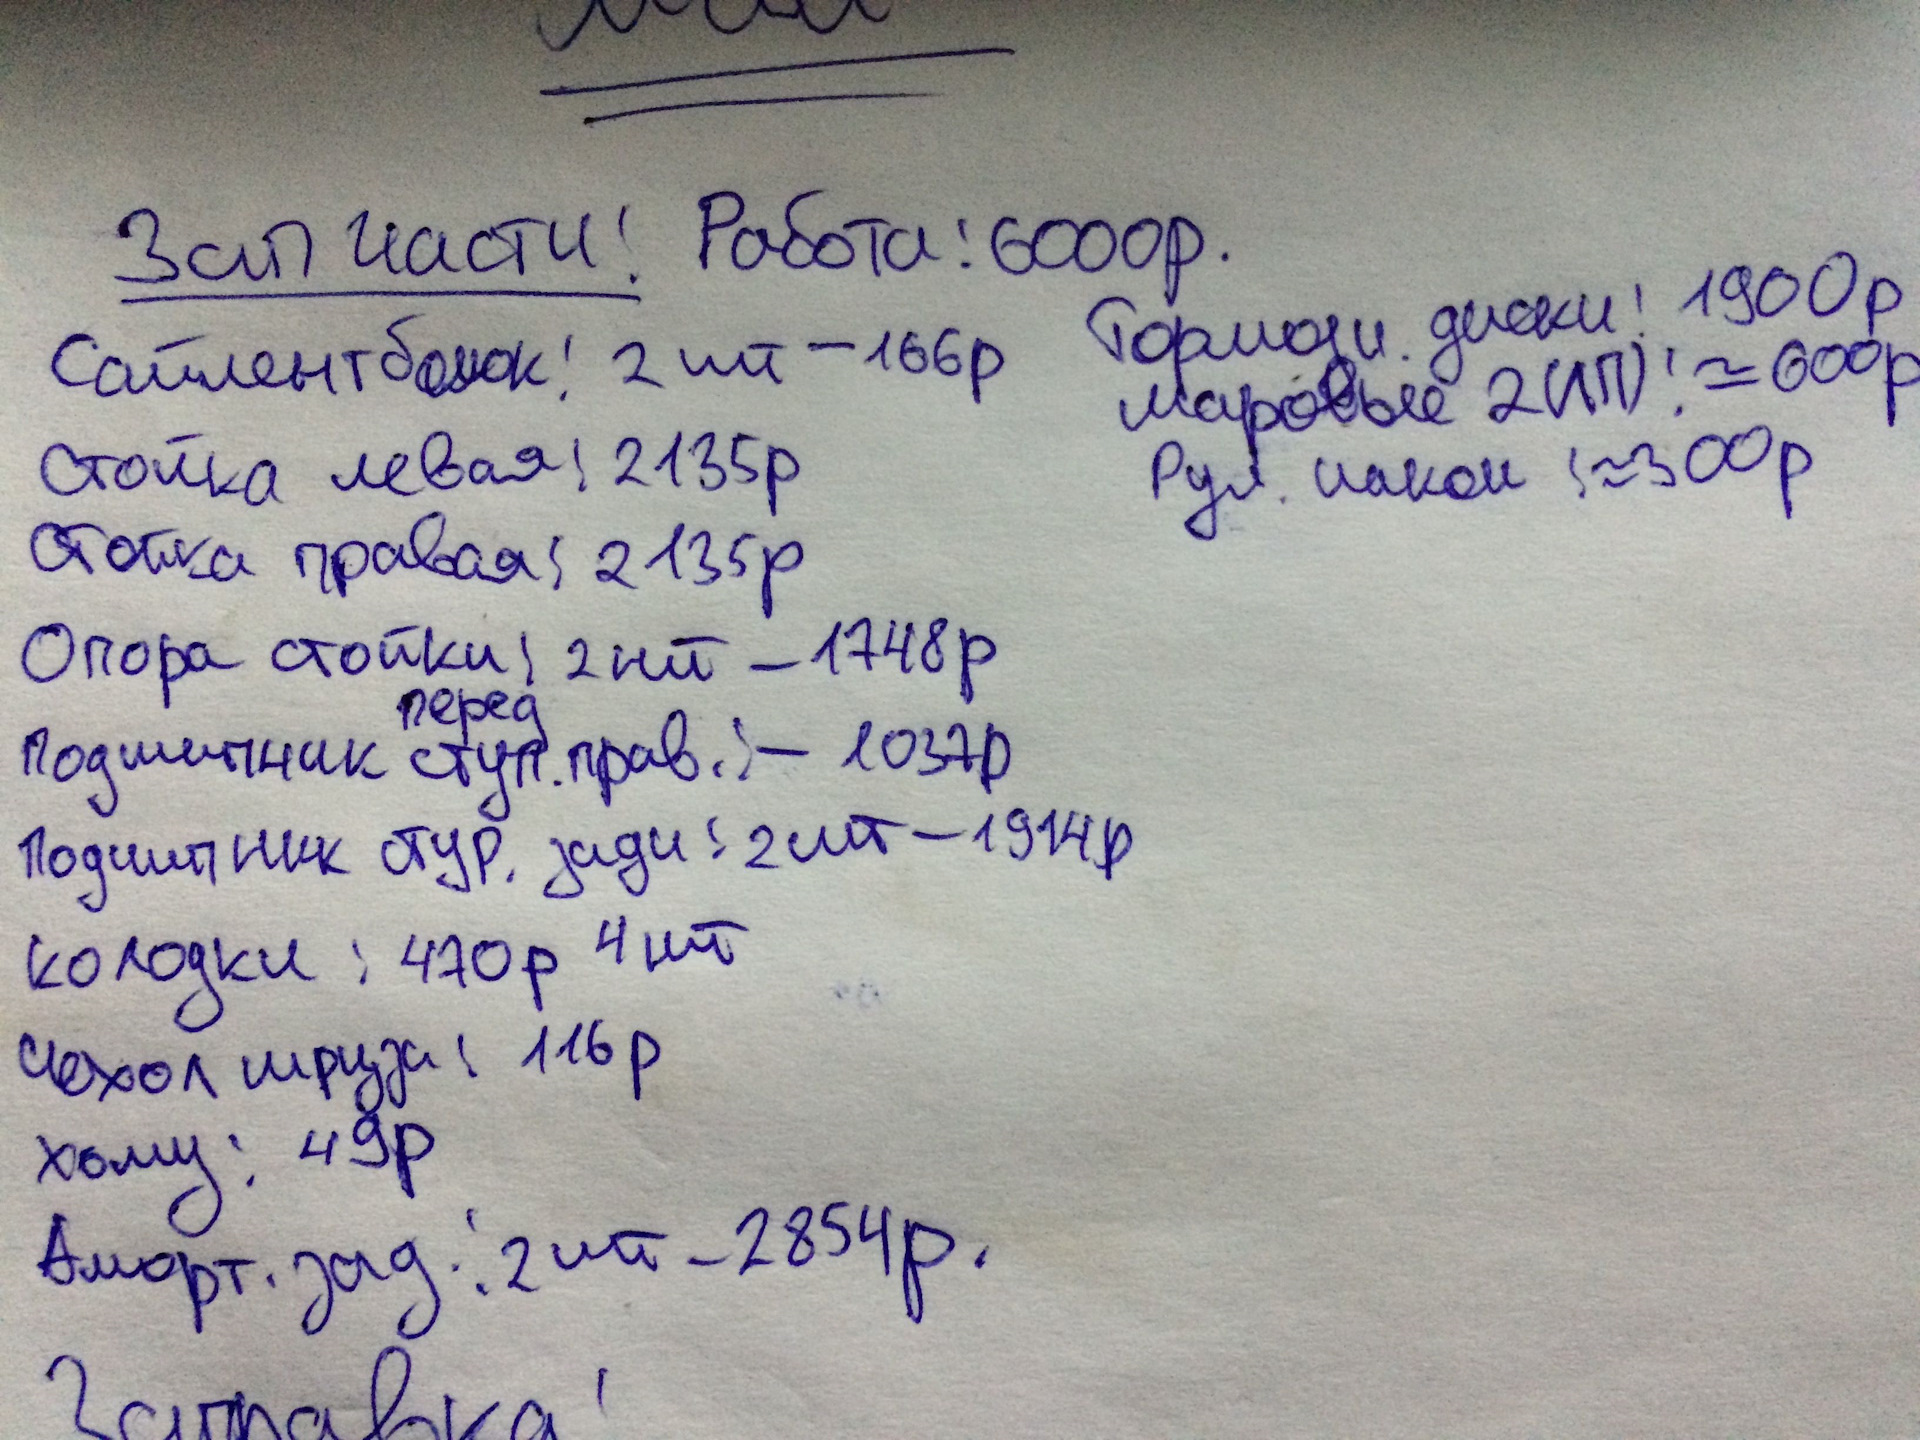 Май
Запчасти: Работа: 6000р.
Сайлентблок: 2 шт – 166р
Стойка левая: 2135р
Стойка правая: 2135р
Опора стойки: 2 шт – 1748р
перед
Подшипник ступ. прав.: – 1037р
Подшипник ступ. задн: 2 шт – 1914р
Колодки: 470р 4 шт
Чехол шруза: 116р
Хому: 49р
Аморт. зад.: 2 шт – 2854р.
Заправка:
Тормозн. диски: 1900р
Шаровые 2(ЛП): ≈ 600р
Рул. након: ≈ 300р